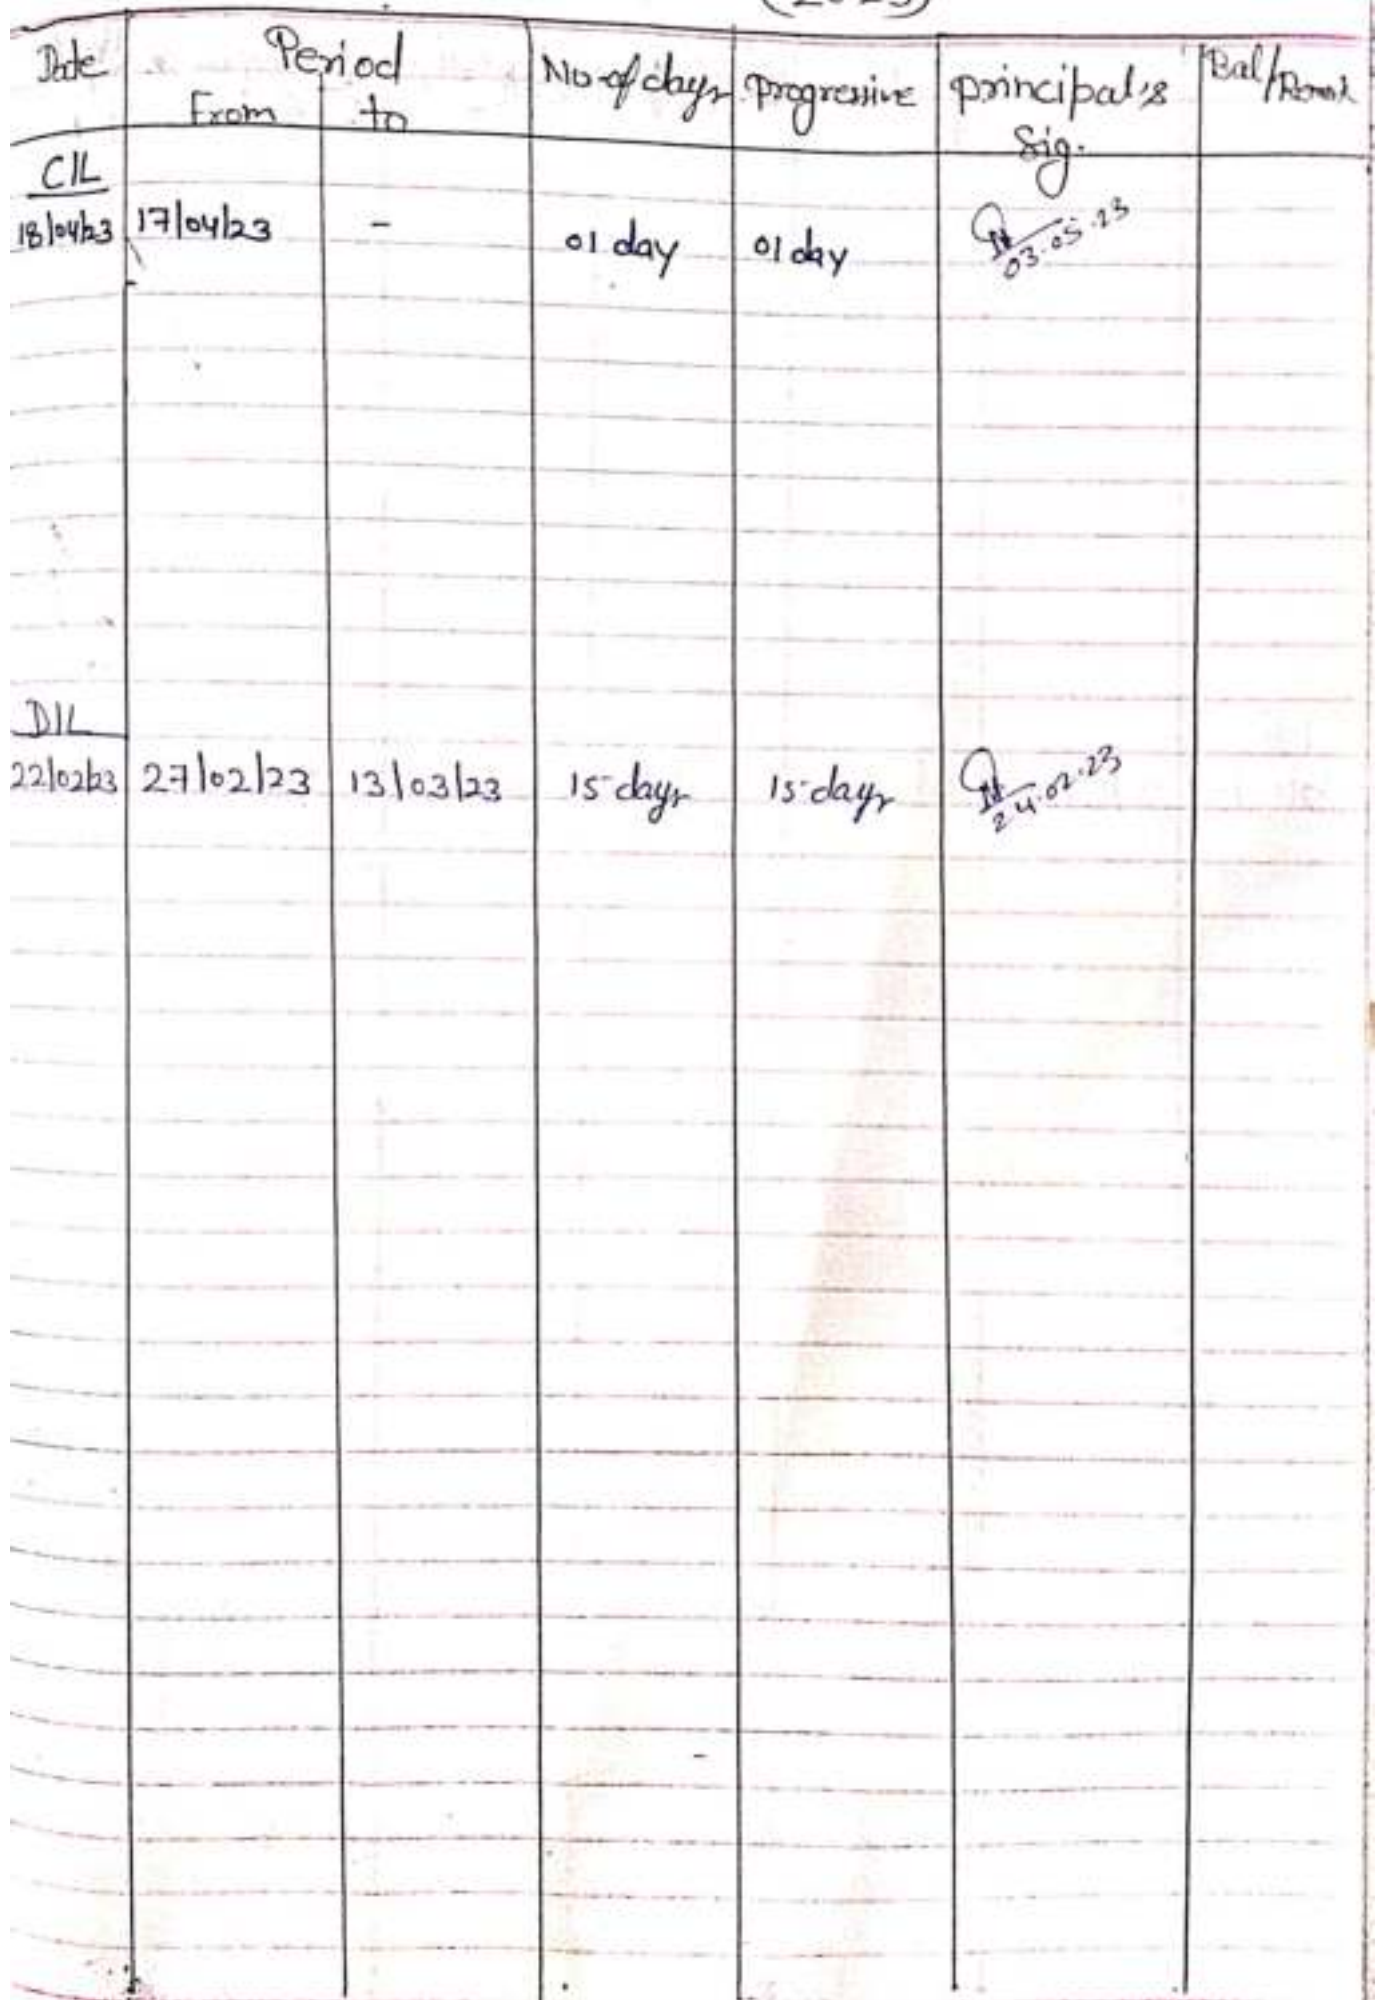 (2023)
Date Period No of days progressive principal's Bal/Remark
From to Sig.
C/L
18/04/23 17/04/23 - 01 day 01 day
03.05.23
D/L
22/02/23 27/02/23 13/03/23 15 days 15 days
24.02.23